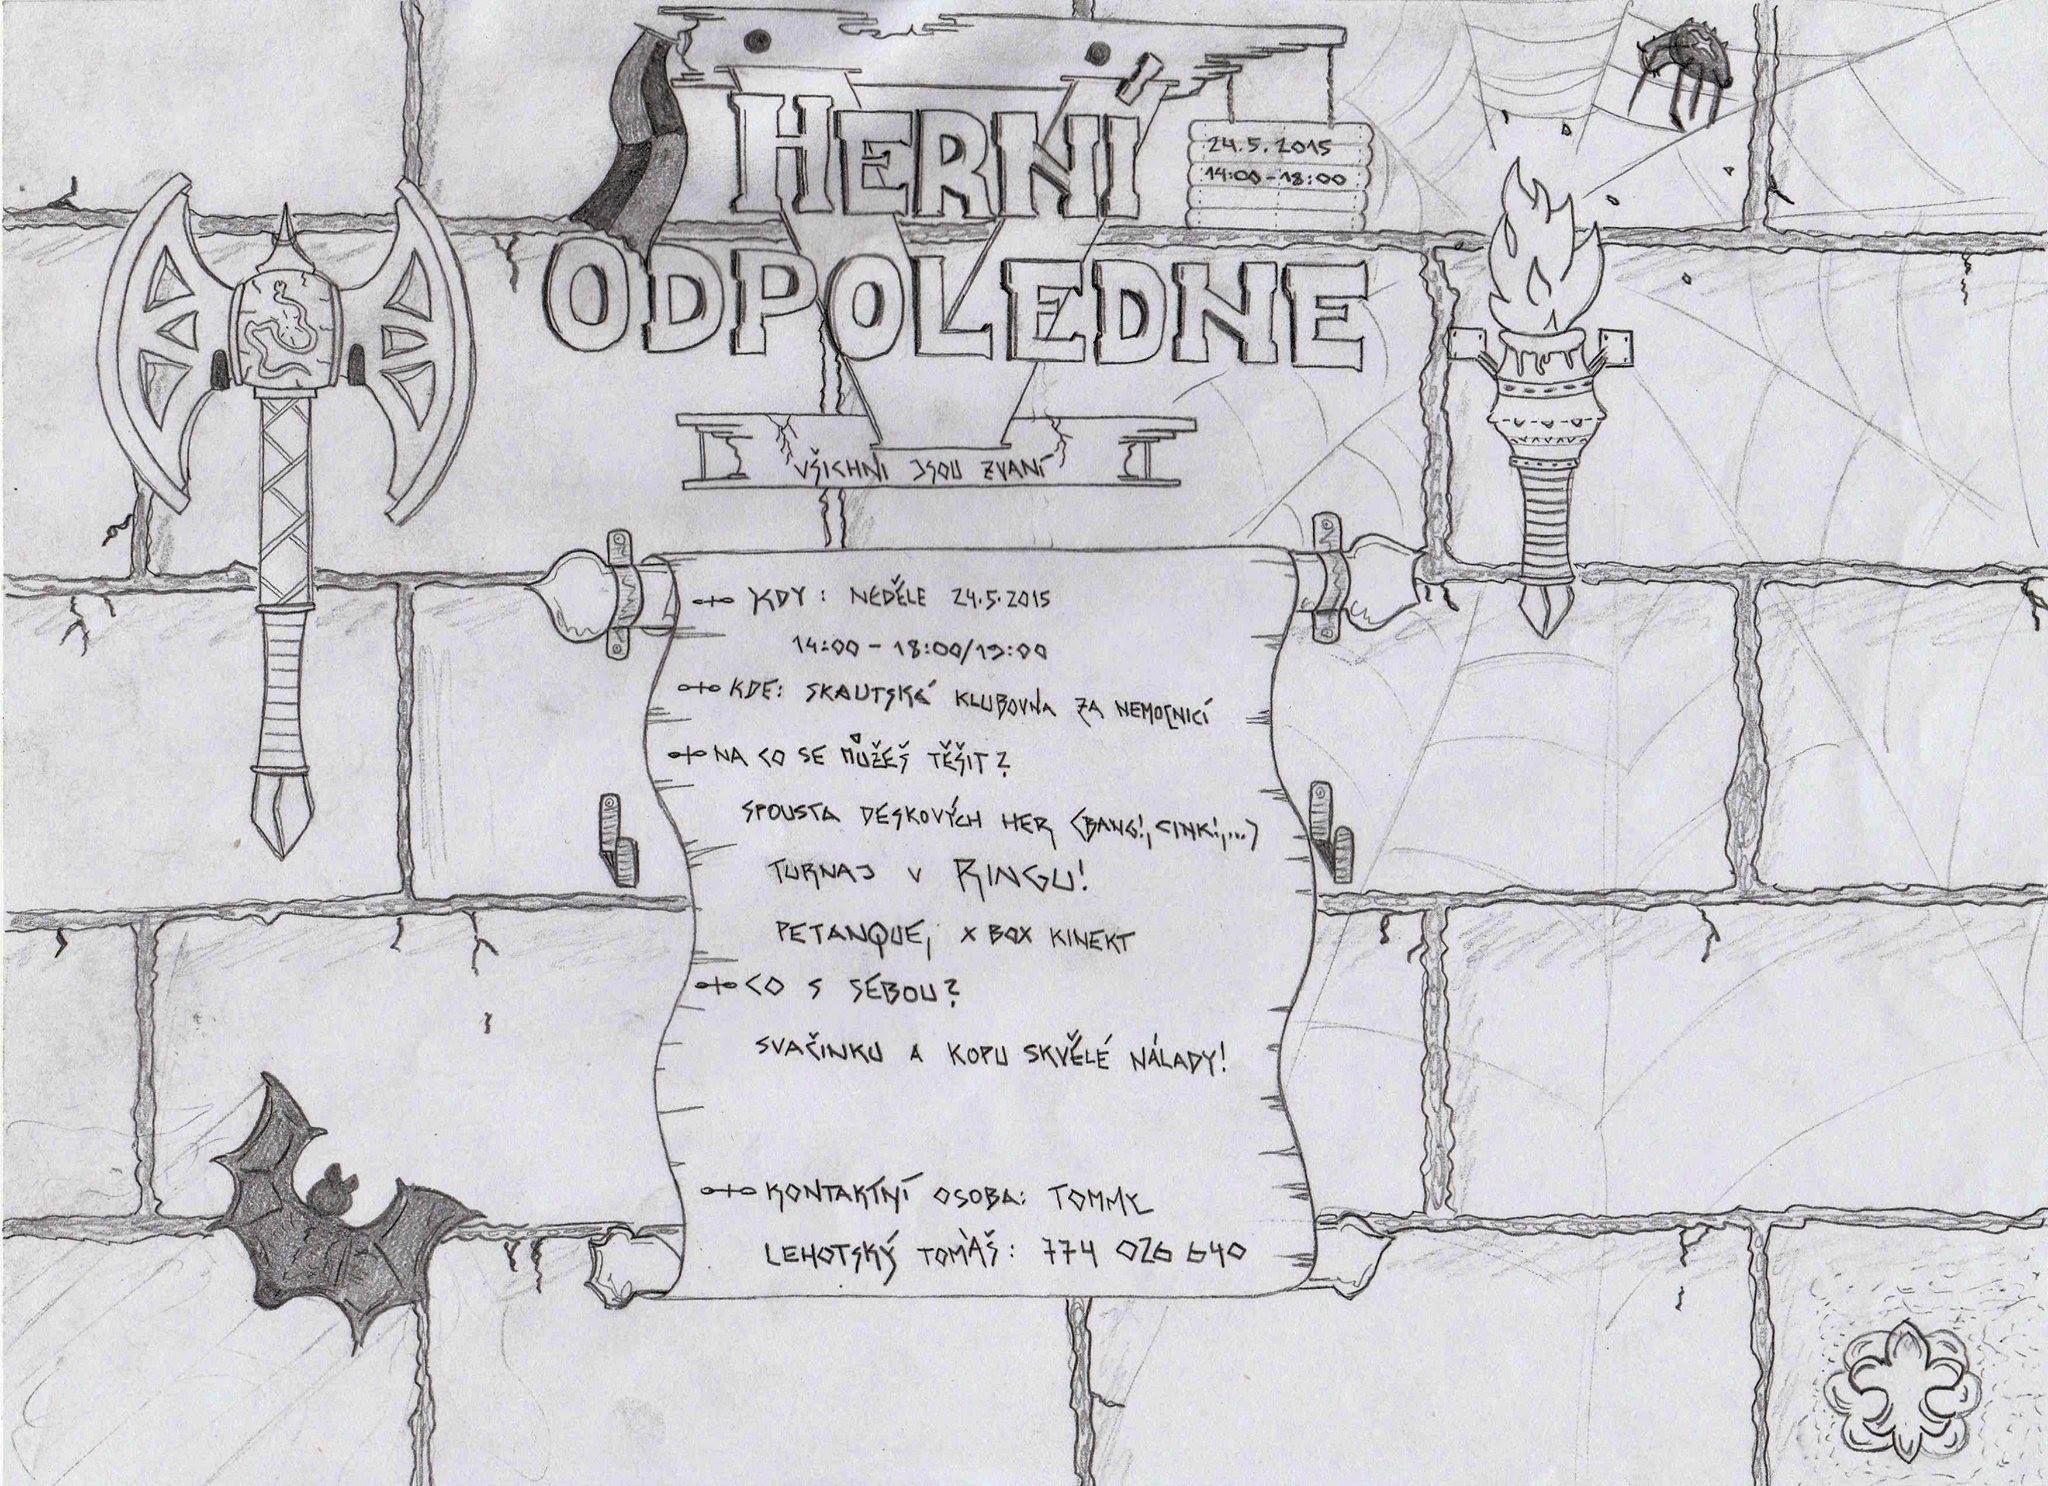 HERNÍ
24.5.2015
14:00-18:00
ODPOLEDNE
VŠICHNI JSOU ZVANÍ
KDY: NEDĚLE 24.5.2015
14:00 - 18:00/19:00
KDE: SKAUTSKÁ KLUBOVNA ZA NEMOCNICÍ
NA CO SE MŮŽEŠ TĚŠIT?
SPOUSTA DESKOVÝCH HER (BANG!, CINK!,...)
TURNAJ V RINGU!
PETANQUE, X BOX KINEKT
CO S SEBOU?
SVAČINKU A KOPU SKVĚLÉ NÁLADY!
KONTAKTNÍ OSOBA: TOMMY
LEHOTSKÝ TOMÀŠ: 774 026 640